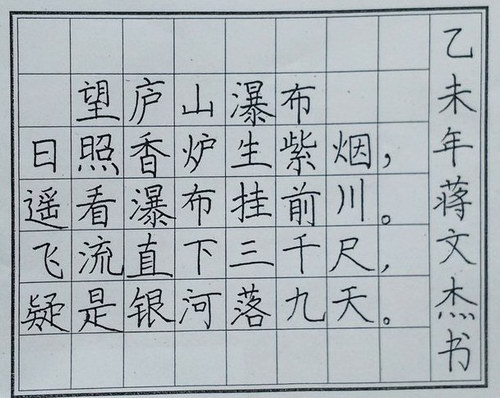 望庐山瀑布
日照香炉生紫烟，
遥看瀑布挂前川。
飞流直下三千尺，
疑是银河落九天。
乙未年蒋文杰书